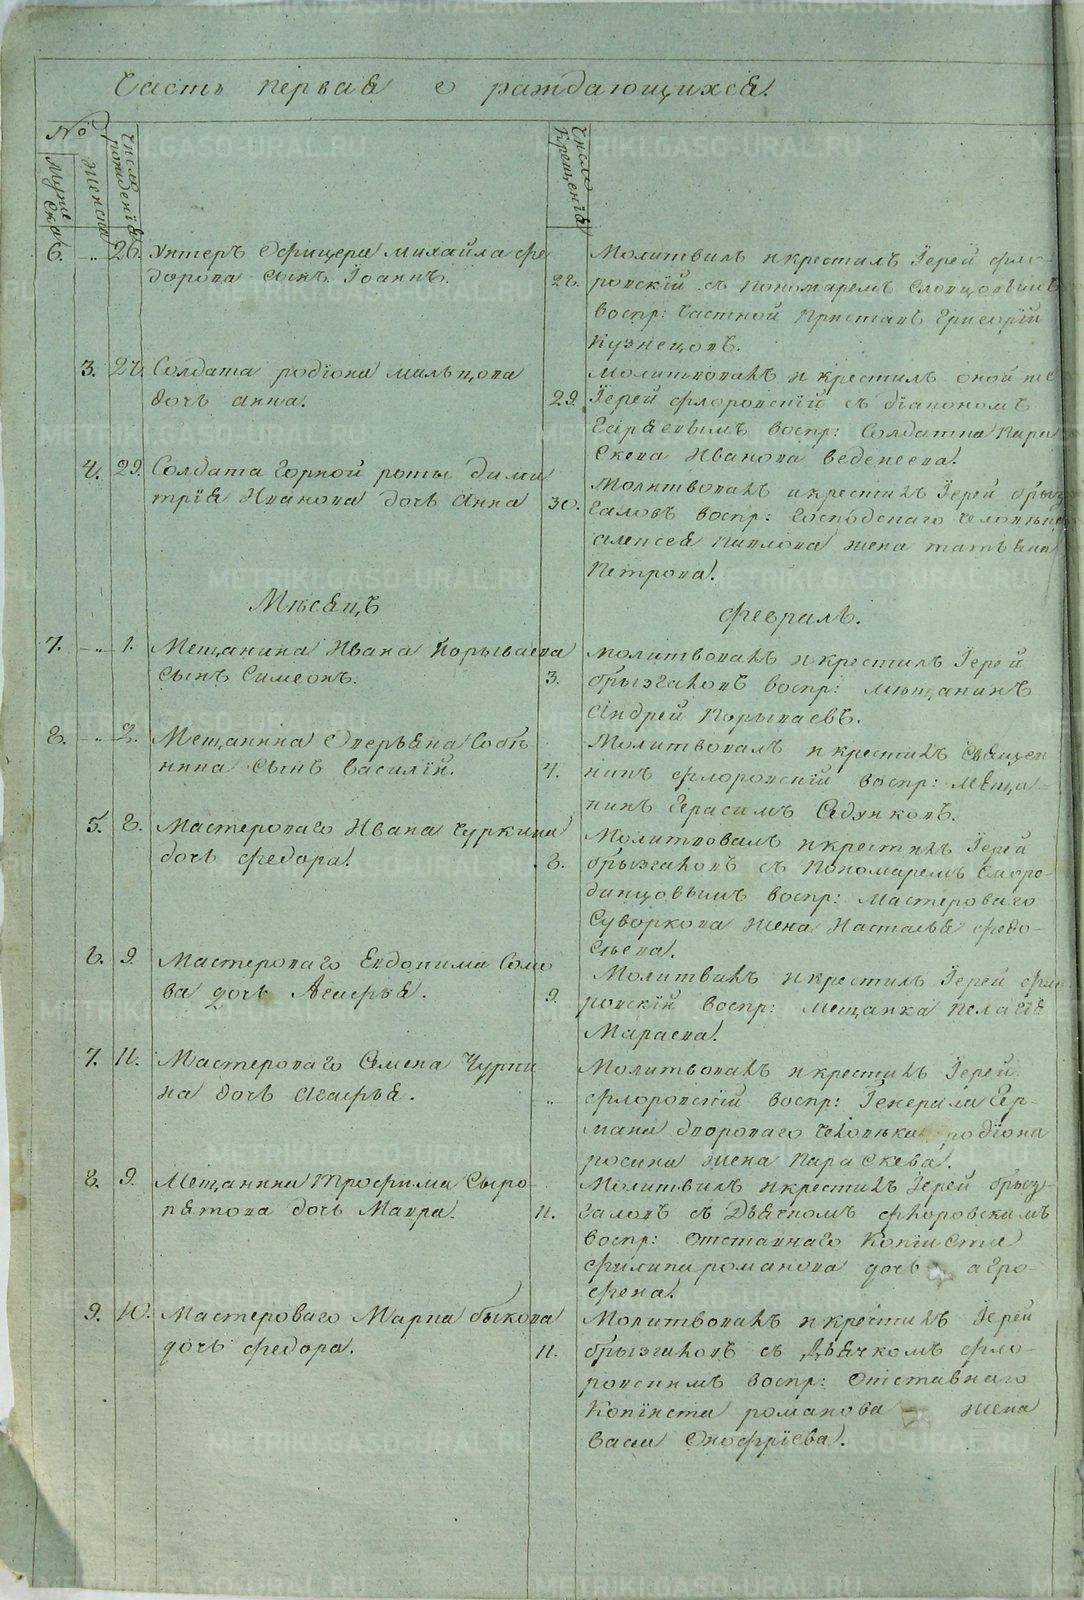 Часть первая о раждающихся.
№
Муже
ска
женска
Число
рождения
Число
Крещения
6. -"- 26. Унтеръ Офицера Михайла Фе
дорова сынъ Iоаннъ.
28.
Молитвилъ и крестилъ Iерей Фло-
ровскiй съ пономаремъ Словцовымъ
воспр: Частной Приставъ Григорiй
Кузнецовъ.
3. 27. Солдата родiона мальцова
дочь анна.
29.
Молитвовалъ и крестилъ оной же
Iерей Флоровскiй съ дiакономъ
воспр: Солдатка Пара
скева Иванова веденеева.
4. 29. Солдата Горной роты Дими
трiя Иванова дочь Анна
30.
Молитвовалъ и крестилъ Iерей брыз
галовъ воспр: Господскаго человѣка
алексея павлова жена татьяна
Петрова.
Мѣсяцъ Февраль.
7. -"- 1. Мещанина Ивана Порываева
сынъ Симеонъ.
3.
Молитвовалъ и крестилъ Iерей
брызгаловъ воспр: мещанинъ
Андрей Порываевъ.
8. -"- 2. Мещанина Аверьяна Собѣ
нина сынъ василiй.
4.
Молитвовалъ и крестилъ Священ
никъ Флоровскiй воспр: Меща-
нинъ Герасимъ Седунковъ.
5. 8. Мастероваго Ивана Чуркина
дочь федора.
8.
Молитвовалъ и крестилъ Iерей
брызгаловъ съ Пономаремъ Сморо-
динцовымъ воспр: мастероваго
Суворкова жена Настасья федо-
сѣева.
6. 9. Мастероваго Евдокима Сомо
ва дочь Агафья.
9.
Молитвилъ и крестилъ Iерей Фло
ровскiй воспр: мещанка пелагiя
Мараева.
7. 11. Мастероваго Семена Чурки
на дочь Агафья.
-"-
Молитвовалъ и крестилъ Iерей
Флоровскiй воспр: Генерала Гер-
мана двороваго человѣка родiона
росина жена Параскева.
8. 9. Мещанина Трофима Сыро-
пятова дочь Мавра.
11.
Молитвилъ и крестилъ Iерей брыз-
галовъ съ Дьячкомъ флоровскимъ
воспр: отставнаго Копiиста
филипа романова дочь агро-
фена.
9. 10. Мастероваго Марка быкова
дочь федора.
11.
Молитвовалъ и крестилъ Iерей
брызгаловъ съ Дьячкомъ фло-
ровскимъ воспр: Отставнаго
Копiиста романова жена
Васса Онофрiева.